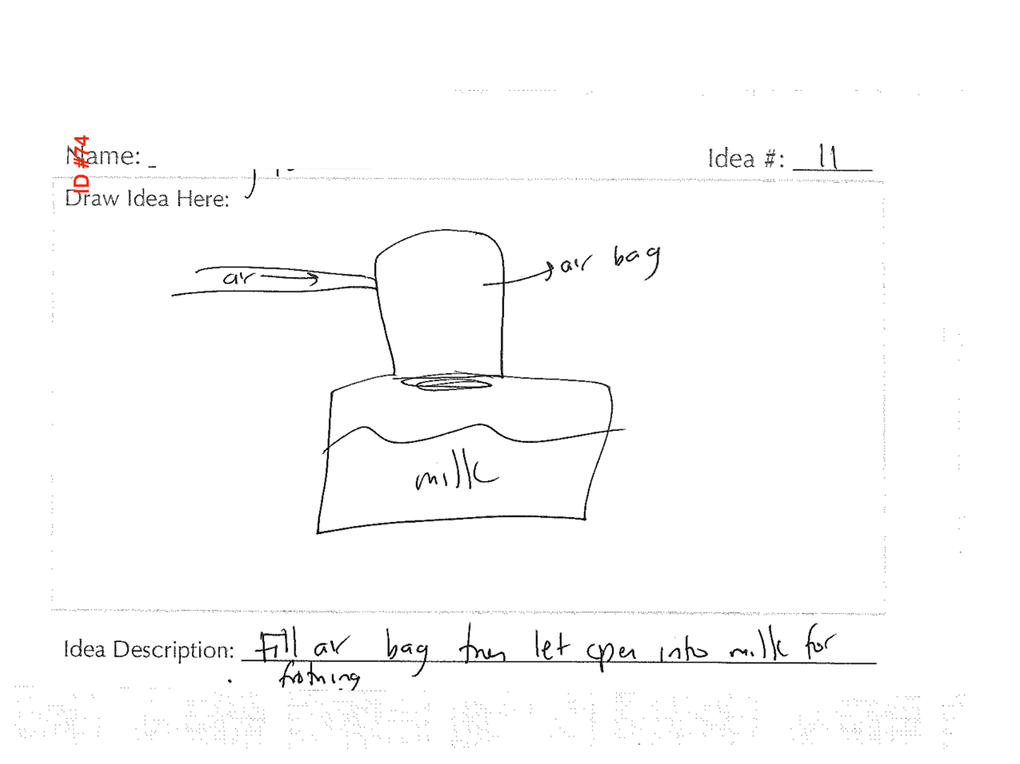 ID #74
Name: Idea #: 11
Draw Idea Here:
air
air bag
milk
Idea Description: Fill air bag then let open into milk for
frothing